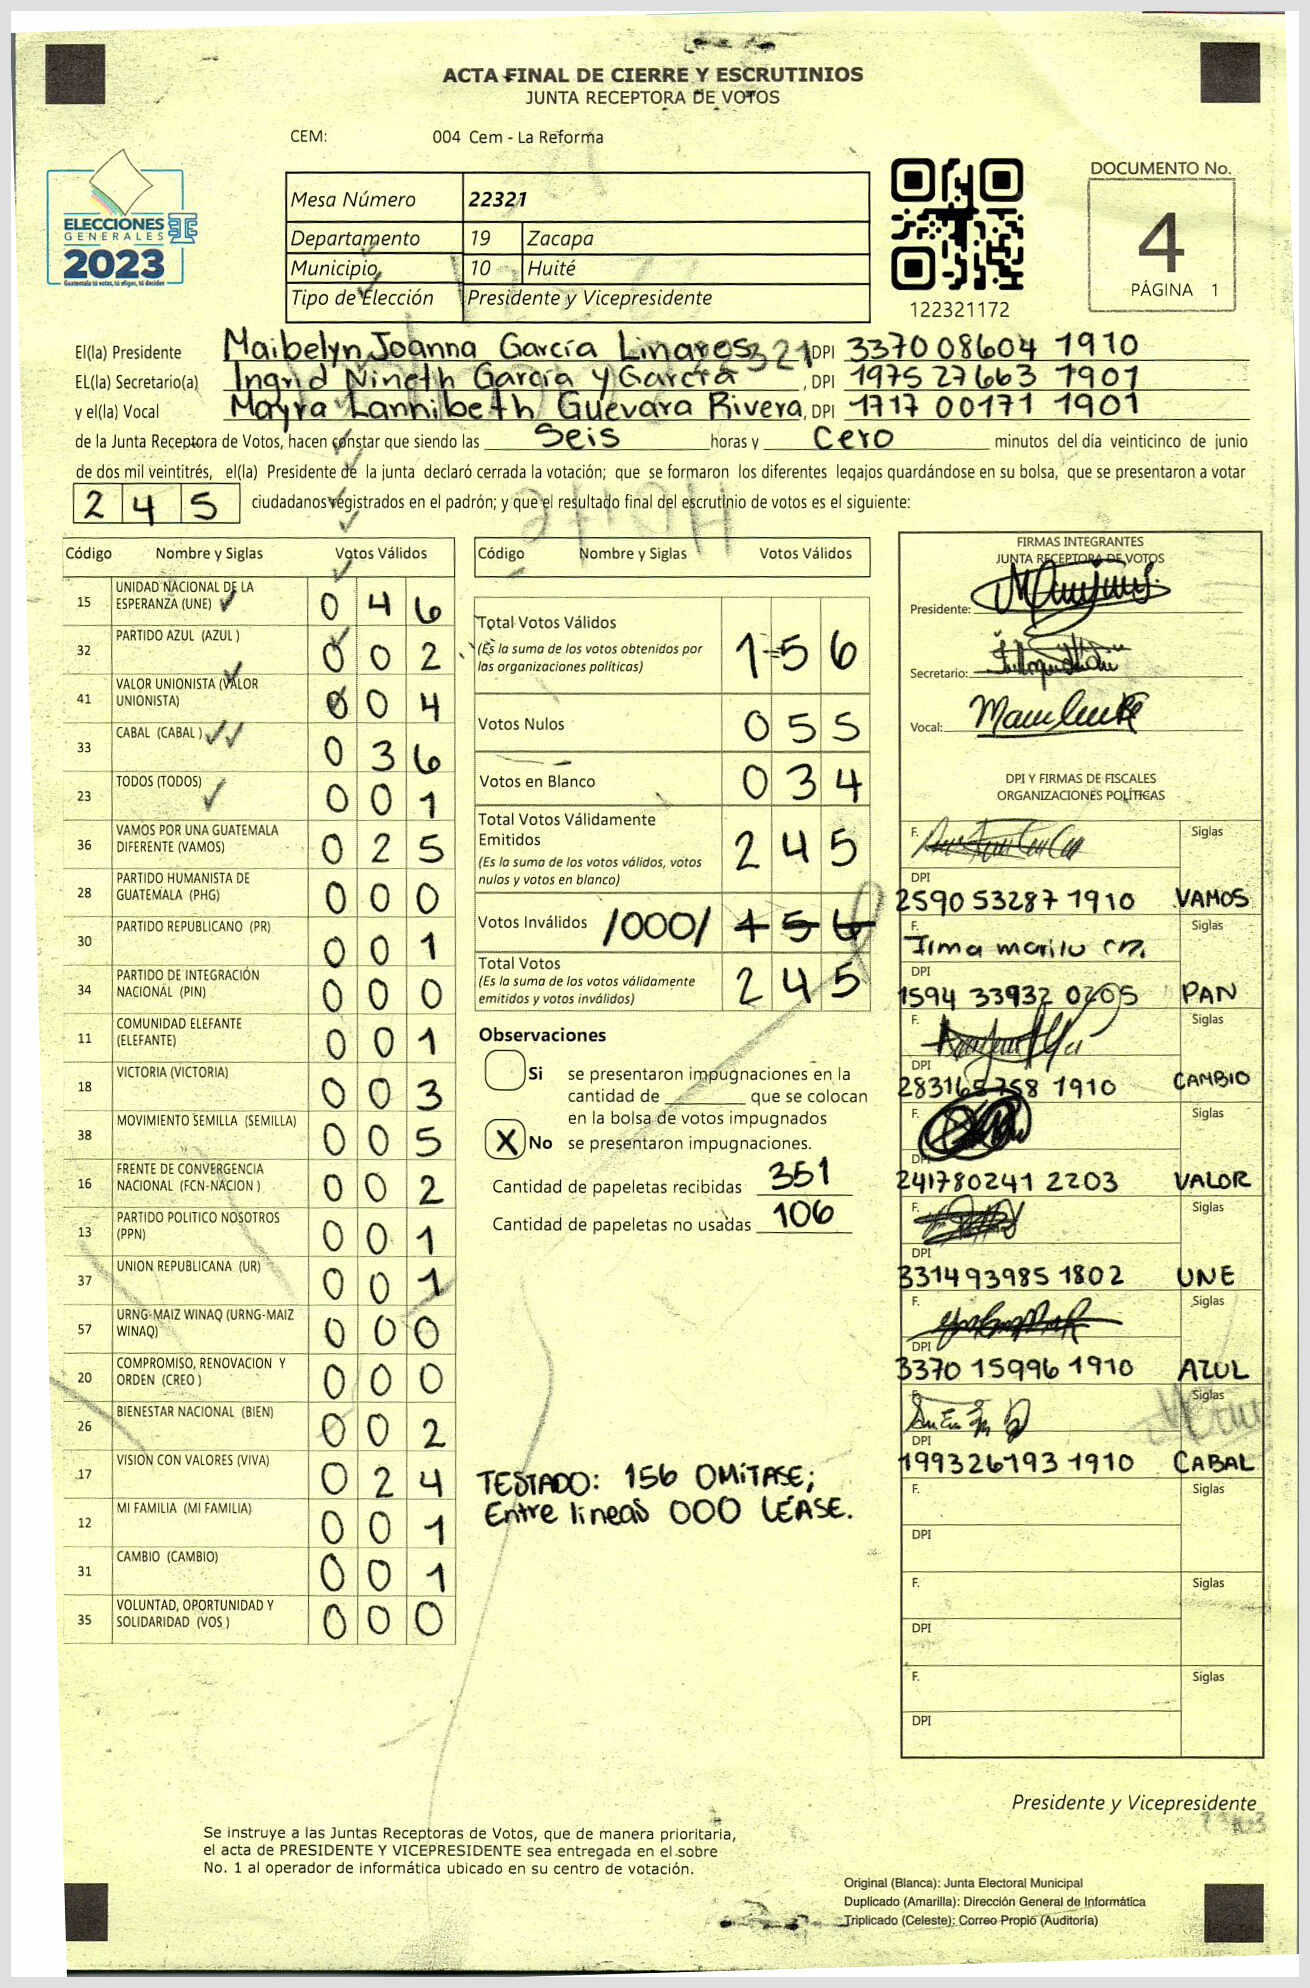 ACTA FINAL DE CIERRE Y ESCRUTINIOS
JUNTA RECEPTORA DE VOTOS
CEM: 004 Cem - La Reforma
ELECCIONES
GENERALES
2023
Guatemala tú votas, tú eliges, tú decides
Mesa Número 22321
Departamento 19 Zacapa
Municipio 10 Huité
Tipo de Elección Presidente y Vicepresidente
122321172
DOCUMENTO No.
4
PÁGINA 1
El(la) Presidente Maibelyn Joanna García Linares DPI 3370 08604 1910
EL(la) Secretario(a) Ingrid Nineth García y García, DPI 1975 27663 1901
y el(la) Vocal Mayra Lannibeth Guevara Rivera, DPI 1717 00171 1901
de la Junta Receptora de Votos, hacen constar que siendo las Seis horas y Cero minutos del día veinticinco de junio
de dos mil veintitrés, el(la) Presidente de la junta declaró cerrada la votación; que se formaron los diferentes legajos quardándose en su bolsa, que se presentaron a votar
245 ciudadanos registrados en el padrón; y que el resultado final del escrutinio de votos es el siguiente:
Código Nombre y Siglas Votos Válidos
15 UNIDAD NACIONAL DE LA ESPERANZA (UNE) 046
32 PARTIDO AZUL (AZUL ) 002
41 VALOR UNIONISTA (VALOR UNIONISTA) 004
33 CABAL (CABAL ) 036
23 TODOS (TODOS) 001
36 VAMOS POR UNA GUATEMALA DIFERENTE (VAMOS) 025
28 PARTIDO HUMANISTA DE GUATEMALA (PHG) 000
30 PARTIDO REPUBLICANO (PR) 001
34 PARTIDO DE INTEGRACIÓN NACIONAL (PIN) 000
11 COMUNIDAD ELEFANTE (ELEFANTE) 001
18 VICTORIA (VICTORIA) 003
38 MOVIMIENTO SEMILLA (SEMILLA) 005
16 FRENTE DE CONVERGENCIA NACIONAL (FCN-NACION ) 002
13 PARTIDO POLITICO NOSOTROS (PPN) 001
37 UNION REPUBLICANA (UR) 001
57 URNG-MAIZ WINAQ (URNG-MAIZ WINAQ) 000
20 COMPROMISO, RENOVACION Y ORDEN (CREO ) 000
26 BIENESTAR NACIONAL (BIEN) 002
17 VISION CON VALORES (VIVA) 024
12 MI FAMILIA (MI FAMILIA) 001
31 CAMBIO (CAMBIO) 001
35 VOLUNTAD, OPORTUNIDAD Y SOLIDARIDAD (VOS ) 000
Código Nombre y Siglas Votos Válidos
Total Votos Válidos
(Es la suma de los votos obtenidos por
las organizaciones políticas) 156
Votos Nulos 055
Votos en Blanco 034
Total Votos Válidamente
Emitidos
(Es la suma de los votos válidos, votos
nulos y votos en blanco) 245
Votos Inválidos /000/ 156
Total Votos
(Es la suma de los votos válidamente
emitidos y votos inválidos) 245
Observaciones
Si se presentaron impugnaciones en la
cantidad de ______ que se colocan
en la bolsa de votos impugnados
X No se presentaron impugnaciones.
Cantidad de papeletas recibidas 351
Cantidad de papeletas no usadas 106
TESTADO: 156 OMíTASE;
Entre lineas 000 LÉASE.
FIRMAS INTEGRANTES
JUNTA RECEPTORA DE VOTOS
Presidente:
Secretario:
Vocal:
DPI Y FIRMAS DE FISCALES
ORGANIZACIONES POLÍTICAS
F. Siglas
DPI
2590 53287 1910 VAMOS
F. Irma marilu Siglas
DPI
1594 33932 0205 PAN
F. Siglas
DPI
283165758 1910 CAMBIO
F. Siglas
DPI
241780241 2203 VALOR
F. Siglas
DPI
331493985 1802 UNE
F. Siglas
DPI
3370 15996 1910 AZUL
F. Siglas
DPI
199326193 1910 CABAL
F. Siglas
DPI
F. Siglas
DPI
F. Siglas
DPI
Presidente y Vicepresidente
Se instruye a las Juntas Receptoras de Votos, que de manera prioritaria,
el acta de PRESIDENTE Y VICEPRESIDENTE sea entregada en el sobre
No. 1 al operador de informática ubicado en su centro de votación.
Original (Blanca): Junta Electoral Municipal
Duplicado (Amarilla): Dirección General de Informática
Triplicado (Celeste): Correo Propio (Auditoría)